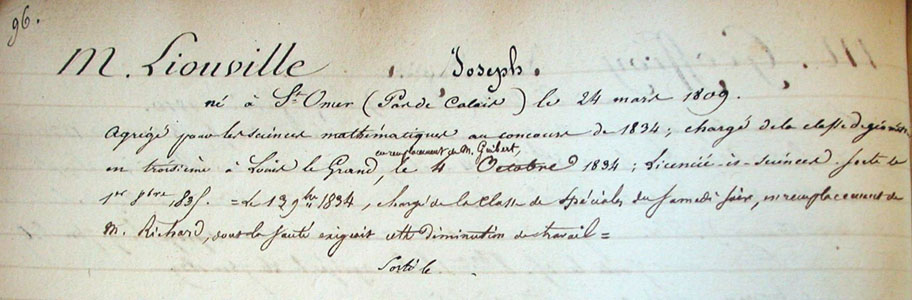 96.
M. Liouville Joseph.
né à St Omer (Pas de Calais) le 24 mars 1809.
Agrégé pour les sciences mathématiques au concours de 1834; chargé de la classe de géométrie
en remplacement de M. Guibert,
en troisième à Louis le Grand, le 4 Octobre 1834; Licencié-ès-sciences. Sorti le
1er 7bre 1835. = Le 13 9bre 1834, chargé de la Classe de Spéciales du Samedi soir, en remplacement de
M. Richard, dont la santé exigeait cette diminution de travail =
Sorti le